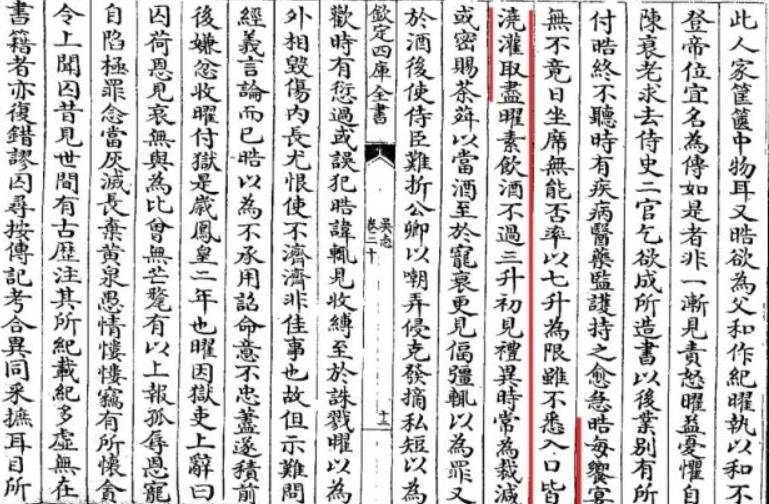 此人家筐篋中物耳又晧欲為父和作紀曜執以和不
登帝位宜名為傳如是者非一漸見責怒曜益憂懼自
陳衰老求去侍史二官乞欲成所造書以後業别有所
付晧終不聽時有疾病醫藥監護持之愈急晧每饗宴
無不竟日坐席無能否率以七升為限雖不悉入口皆
澆灌取盡曜素飲酒不過三升初見禮異時常為裁減
或密賜茶荈以當酒至於寵衰更見偪彊輒以為罪又
於酒後使侍臣難折公卿以嘲弄侵克發摘私短以為
欽定四庫全書
吳志
卷二十
十三
歡時有愆過或誤犯晧諱輒見收縛至於誅戮曜以為
外相毀傷内長尤恨使不濟濟非佳事也故但示難問
經義言論而已晧以為不承用詔命意不忠蓋遂積前
後嫌忿收曜付獄是歲鳳皇二年也曜因獄吏上辭曰
囚荷恩見哀無與為比曾無芒氂有以上報孤辱恩寵
自陷極罪念當灰滅長棄黄泉愚情慺慺竊有所懷貪
令上聞囚昔見世間有古歴注其所紀載紀多虛無在
書籍者亦復錯謬囚尋按傳記考合異同采摭耳目所